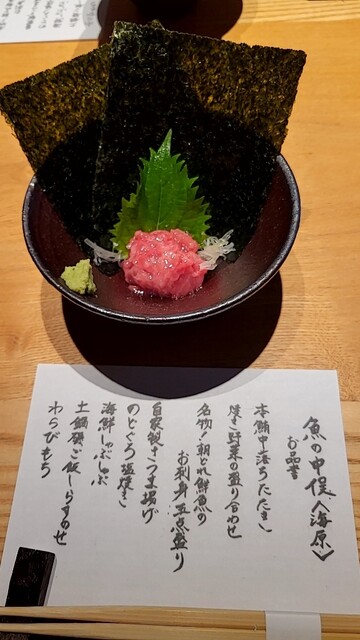 魚の中俣〈海原〉
お品書
本鮪中落ちたたき
焼き野菜の盛り合わせ
名物!朝どれ鮮魚の
お刺身五点盛り
自家製さつま揚げ
のどぐろ塩焼き
海鮮しゃぶしゃぶ
土鍋ご飯しらすのせ
わらびもち